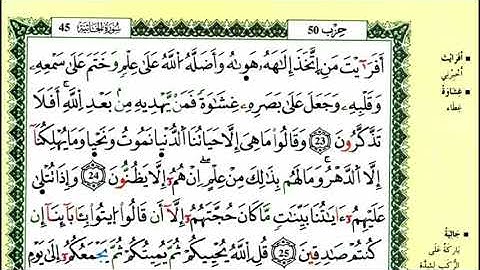 سُورَةُ الجَاثِيَةِ 45
حِزْب 50
أَفَرَٰيْتَ مَنِ اِتَّخَذَ إِلَٰهَهُۥ هَوَىٰهُ وَأَضَلَّهُ اُللَّهُ عَلَىٰ عِلْمٖ وَخَتَمَ عَلَىٰ سَمْعِهِۦ
وَقَلْبِهِۦ وَجَعَلَ عَلَىٰ بَصَرِهِۦ غِشَٰوَةٗ فَمَنْ يَّهْدِيهِ مِنۢ بَعْدِ اِللَّهِ أَفَلَا
تَذَّكَّرُونَ 23 وَقَالُواْ مَا هِىَ إِلَّا حَيَاتُنَا اَلدُّنْيَا نَمُوتُ وَنَحْيَا وَمَا يُهْلِكُنَا
إِلَّا اَلدَّهْرُ وَمَا لَهُم بِذَٰلِكَ مِنْ عِلْمٍ اِنْ هُمُۥٓ إِلَّا يَظُنُّونَ 24 وَإِذَا تُتْلَىٰ
عَلَيْهِمُۥٓ ءَايَٰتُنَا بَيِّنَٰتٖ مَّا كَانَ حُجَّتَهُمُۥٓ إِلَّآ أَن قَالُواْ اُيتُواْ بِـَٔابَآئِنَآ إِن
كُنتُمْ صَٰدِقِينَ 25 قُلِ اِللَّهُ يُحْيِيكُمْ ثُمَّ يُمِيتُكُمْ ثُمَّ يَجْمَعُكُمُۥٓ إِلَىٰ يَوْمِ
أَفَرَٰيْتَ
أَخْبِرْنِي
غِشَاوَةً
غِطَاءً
جَاثِيَةً
بَارِكَةً عَلَى
الرُّكَبِ لِشِدَّةِ